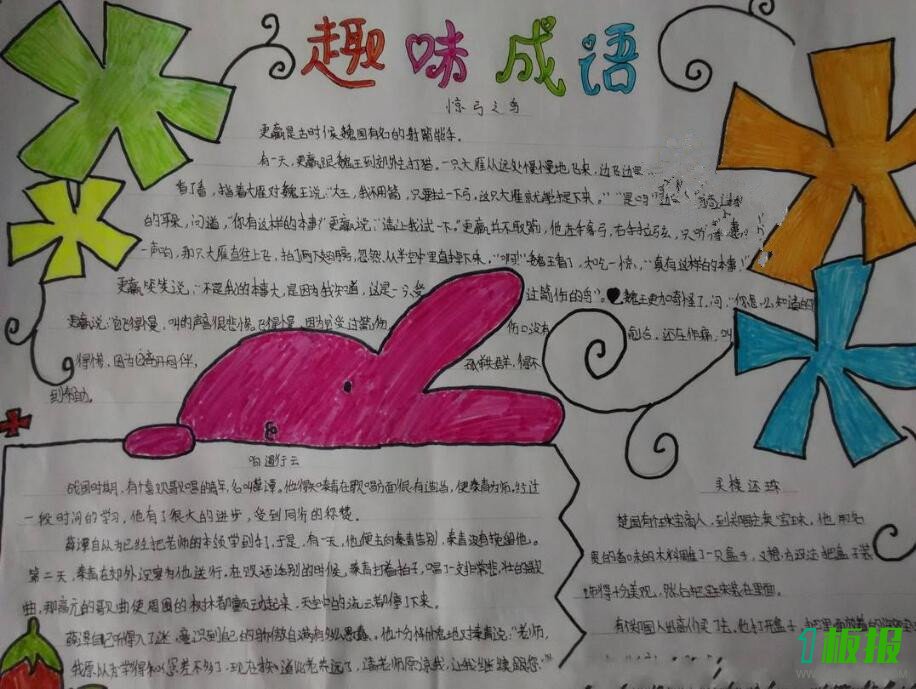 趣味成语
惊弓之鸟
更羸是古时候魏国有名的射箭能手。
有一天,更羸跟魏王到郊外去打猎。一只大雁从远处慢慢地飞来,边飞边
看了看,指着大雁对魏王说:“大王,我不用箭,只要拉一下弓,这只大雁就能掉下来。”“是吗
的耳朵,问道,“你有这样的本事?”更羸说:“请让我试一下。”更羸并不取箭,他左手拿弓,右手拉弦,只听
一声响,那只大雁直往上飞,拍了两下翅膀,忽然从半空中里直掉下来。“啊!”魏王看了,大吃一惊,“真有这样的本事!”
更羸笑笑说,“不是我的本事大,是因为我知道,这是一只受 过箭伤的鸟”。魏王更加奇怪了,问:“你是怎么知道的
更羸说:“它飞得慢,叫的声音很悲惨。飞得慢,因为它受过箭伤, 伤口没有 愈合,还在作痛,叫
得惨,因为它离开同伴, 孤 失群,得不
到帮助。
响遏行云
战国时期,有个喜欢歌唱的青年,名叫薛谭。他得知秦青在歌唱方面很有造诣,便 秦青为师。经过
一段时间的学习,他有了很大的进步,受到同行的称赞。
薛谭自认为已经把老师的本领学到手,于是,有一天,他便去向秦青告别,秦青没有挽留他。
第二天,秦青在郊外设宴为他送行。在饮酒话别的时候,秦青打着拍子,唱了一支非常悲壮的歌
曲,那高亢的歌曲使周围的树林都颤动起来,天空中的流云都停了下来。
薛谭自己听得入了迷,意识到自己的骄傲自满有多么愚蠢。他十分惭愧地对秦青说:“老师,
我原以为学得和您差不多了,现在 知道比老师差远了,请老师原谅我,让我继续跟您
买椟还珠
楚国有个珠宝商人,到郑国去卖宝珠,他用名
贵的香味的木料雕了一只盒子, 把盒子装
饰得十分美观,然后把宝珠装在里面。
有个郑国人出高价买了去,他打开盒子,
1板报